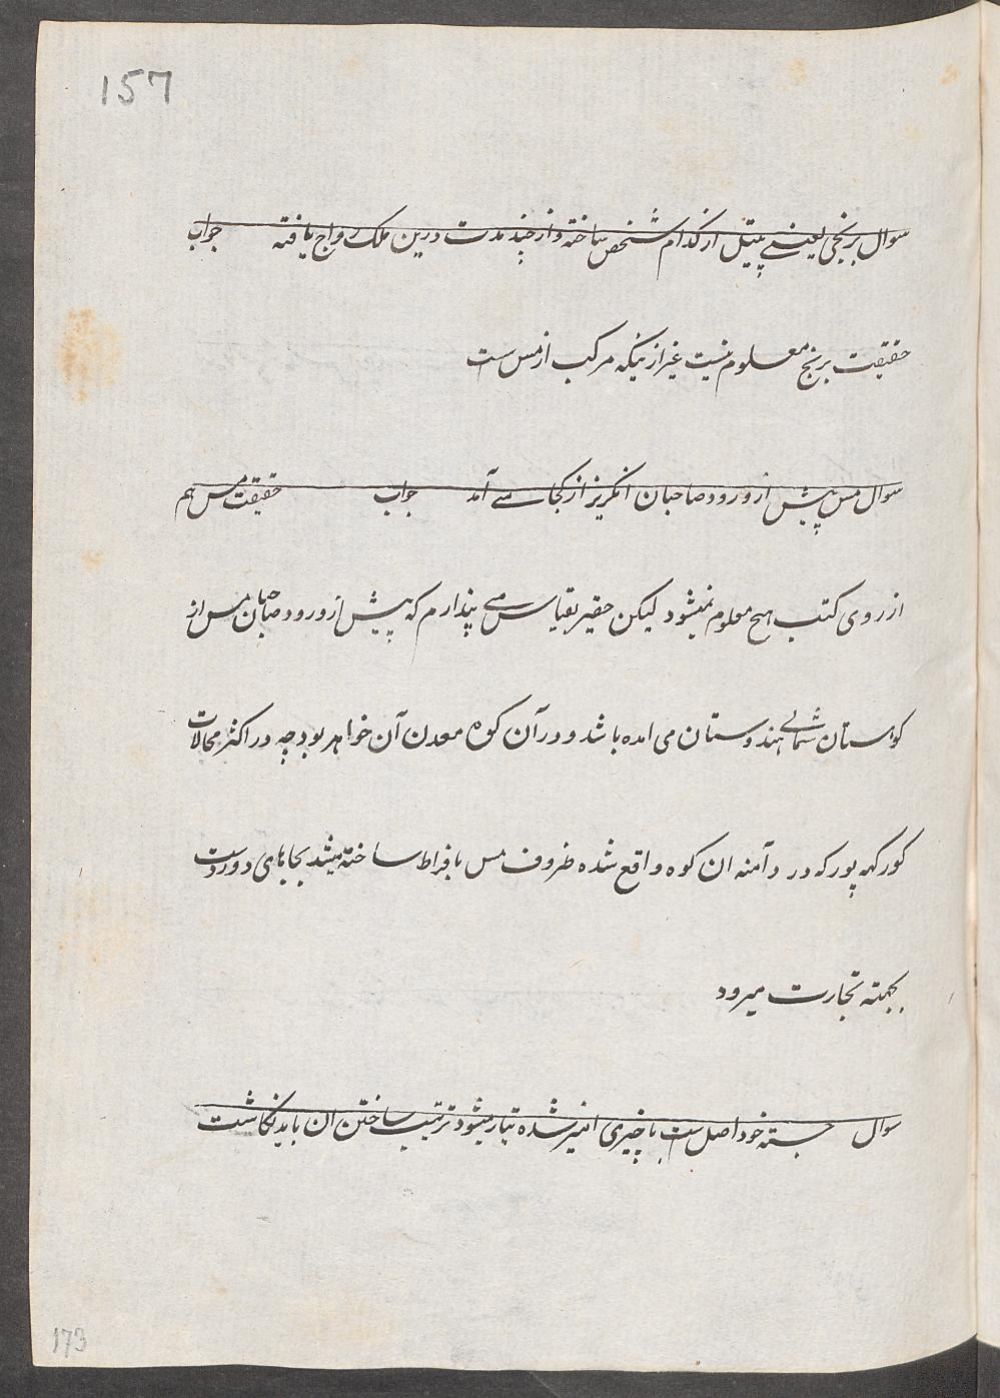 157
سوال برنجی یعنے پیتل از کدام شخص ساخته و از چند مدت درین ملک رواج یافته جواب
حقیقت برنج معلوم نیست غیر ازینکه مرکب از مس ست
سوال مس پیش از ورود صاحبان انکریز از کجا مے آمد جواب حقیقت مس هم
از روی کتب هیچ معلوم نمیشود لیکن حقیر بقیاس مے پندارم که پیش از ورود صاحبان مس از
کوهستان شمالی هندوستان می امده باشد و در آن کوه معدن آن خواهر بود چه در اکثر محالات
کورکهه پور که در دآمنه ان کوه واقع شده ظروف مس بافراط ساخته میشد بجاهای دوردست
بجهته تجارت میرود
سوال جسته خود اصل ست یا چیزی امیز شده تیار میشود ترتیب ساختن ان باید نکاشت
173